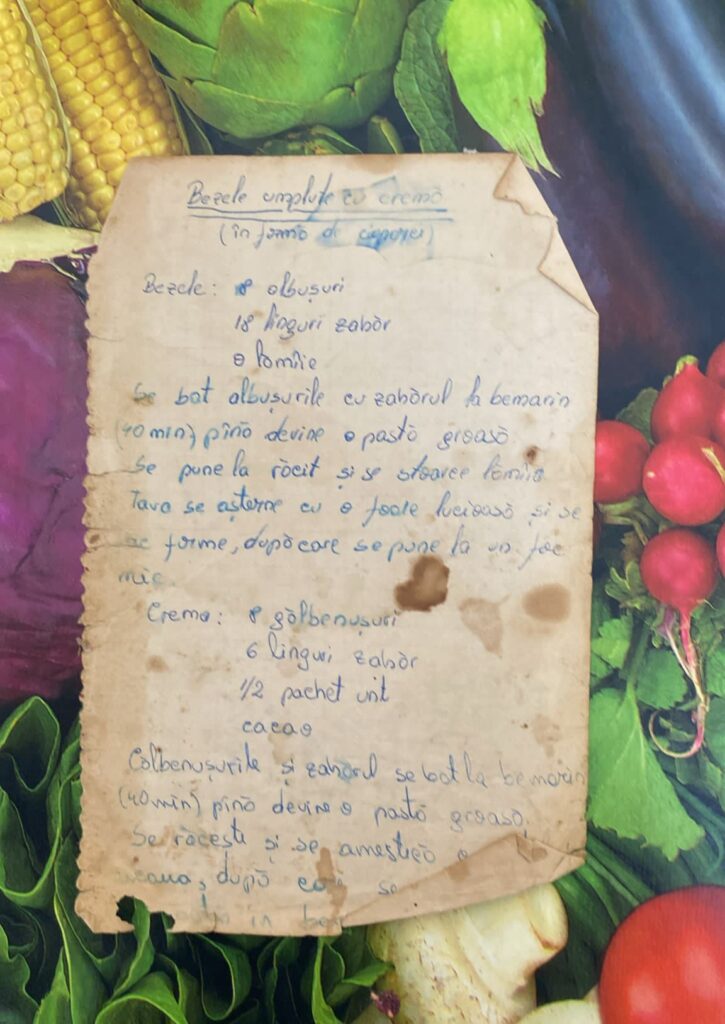 Bezele umplute cu cremă
(în formă de ciperci)
Bezele: 8 olbușuri
18 linguri zabăr
o lomîie
Se bat olbușurile cu zahărul la bemarin
(40 min) pînă devine o pastă groasă.
Se pune la răcit și se stoarce lomîia
Tava se așterne cu o foaie lucioasă și se
fac forme, după care se pune la un foc
mic.
Crema: 8 gălbenușuri
6 linguri zabăr
1/2 pachet unt
cacao
Gălbenușurile și zahărul se bat la bemarin
(40 min) pînă devine o pastă groasă.
Se răcește și se amestică
după se
în